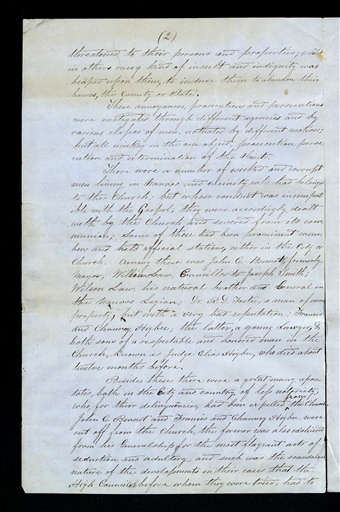 (2)
threatened to their persons and properties; while
in others every kind of insult and indignity was
heaped upon them, to induce them to abandon their
homes, the County or State.
These annoyances, prosecutions and persecutions
were instigated through different agencies and by
various classes of men, actuated by different motives,
but all uniting in the one object, prosecution perse-
cution and extermination of the Saints.
There were a number of wicked and corrupt
men living in Nauvoo and vicinity who had belonged
to the Church, but whose conduct was incompat-
ible with the Gospel; they were accordingly dealt
with by the Church and severed from its com-
munion; some of these had been prominent mem-
bers and held official stations, either in the City or
Church. Among these were John C. Bennett, formerly
Mayor; William Law, Councillor to Joseph Smith;
Wilson Law, his natural brother and General in
the Nauvoo Legion; Dr. R. D. Foster, a man of some
property, but with a very bad reputation; Francis
and Chauncey Higbee, the latter, a young Lawyer, &
both sons of a respectable and honored man in the
Church, known as Judge Elias Higbee, who died about
twelve months before.
Besides these there were a great many apos-
tates, both in the City and country of less notoriety,
who for their delinquencies had been expelled from the Church.
John C. Bennet and Francis and Chauncy Higbee were
cut off from the Church; the former was also cashiered
from his Generalship, for the most flagrant acts of
seduction and adultery; and such was the scandalous
nature of the developments in their cases that the
High Council before whom they were tried, had to